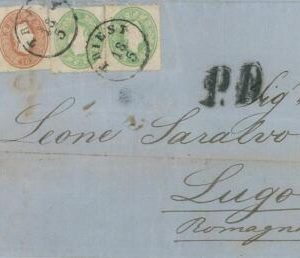 TRIEST
18
5
P.D.
Sig.
Leone Saralvo
Lugo
Romagna